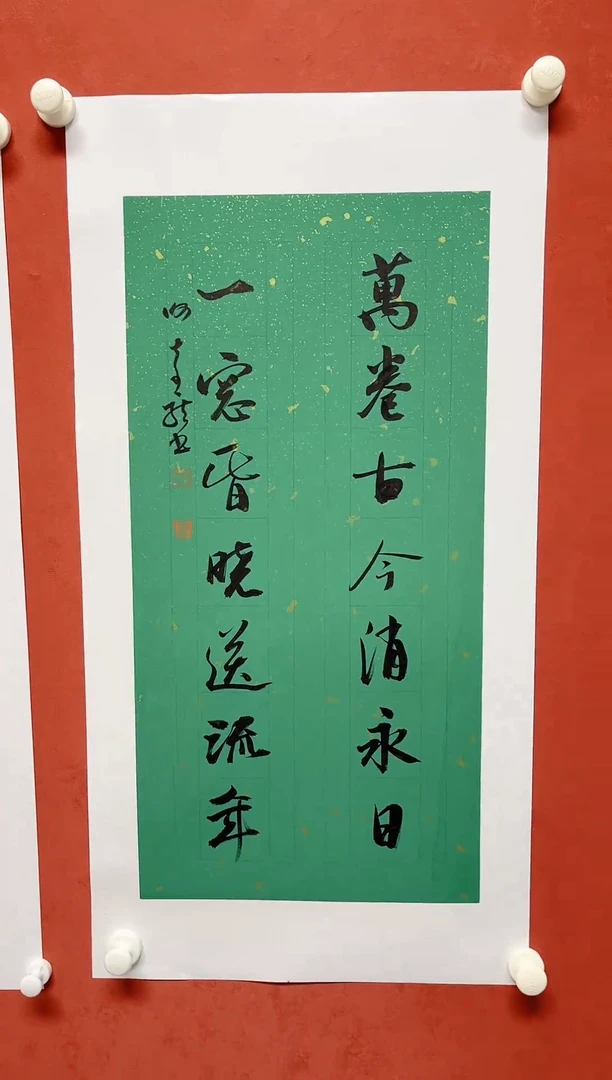 萬卷古今消永日
一窓昏晓送流年
书